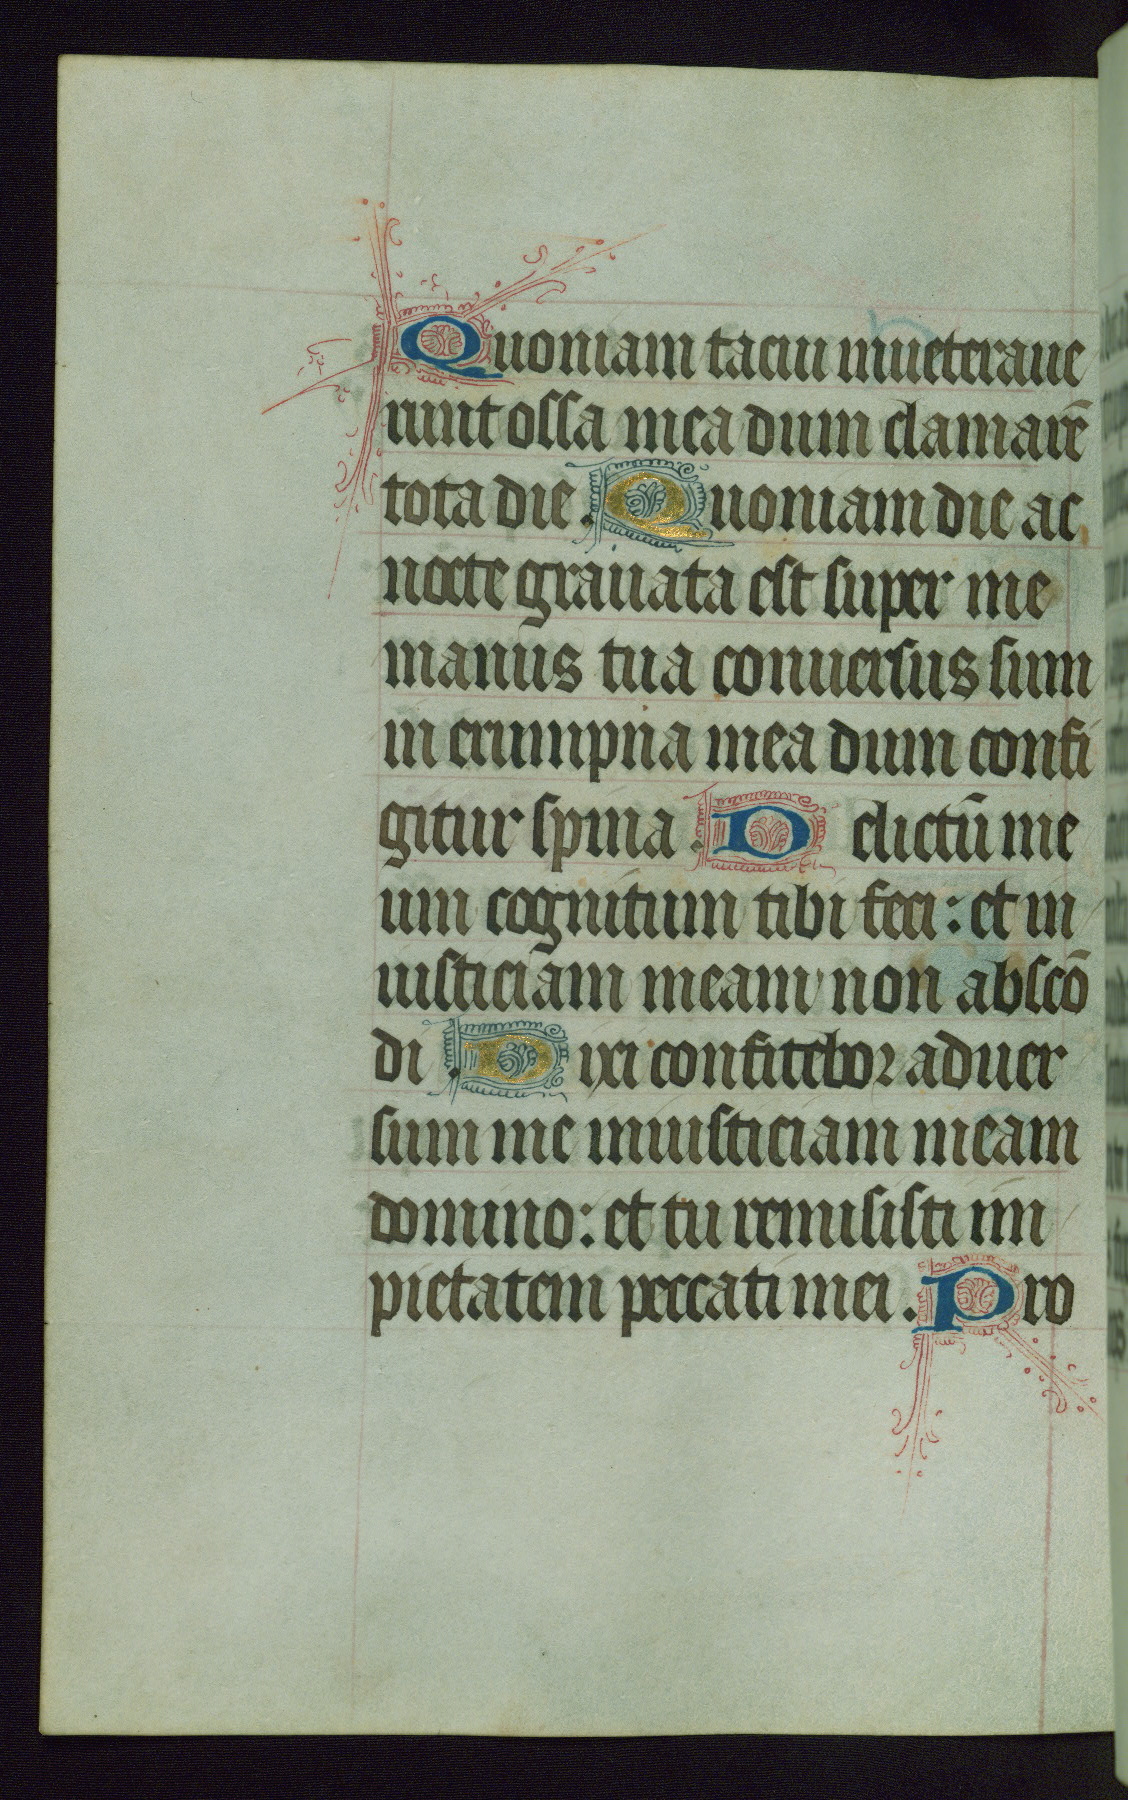 Quoniam tacui inueteraue
runt ossa mea dum clamarē
tota die. Quoniam die ac
nocte grauata est super me
manus tua conuersus sum
in erumpna mea dum confi
gitur spina. Delictū me
um cognitum tibi feci: et in
iusticiam meam non abscō
di. Dixi confitebor aduer
sum me iniusticiam meam
domino: et tu remisisti im
pietatem peccati mei. Pro